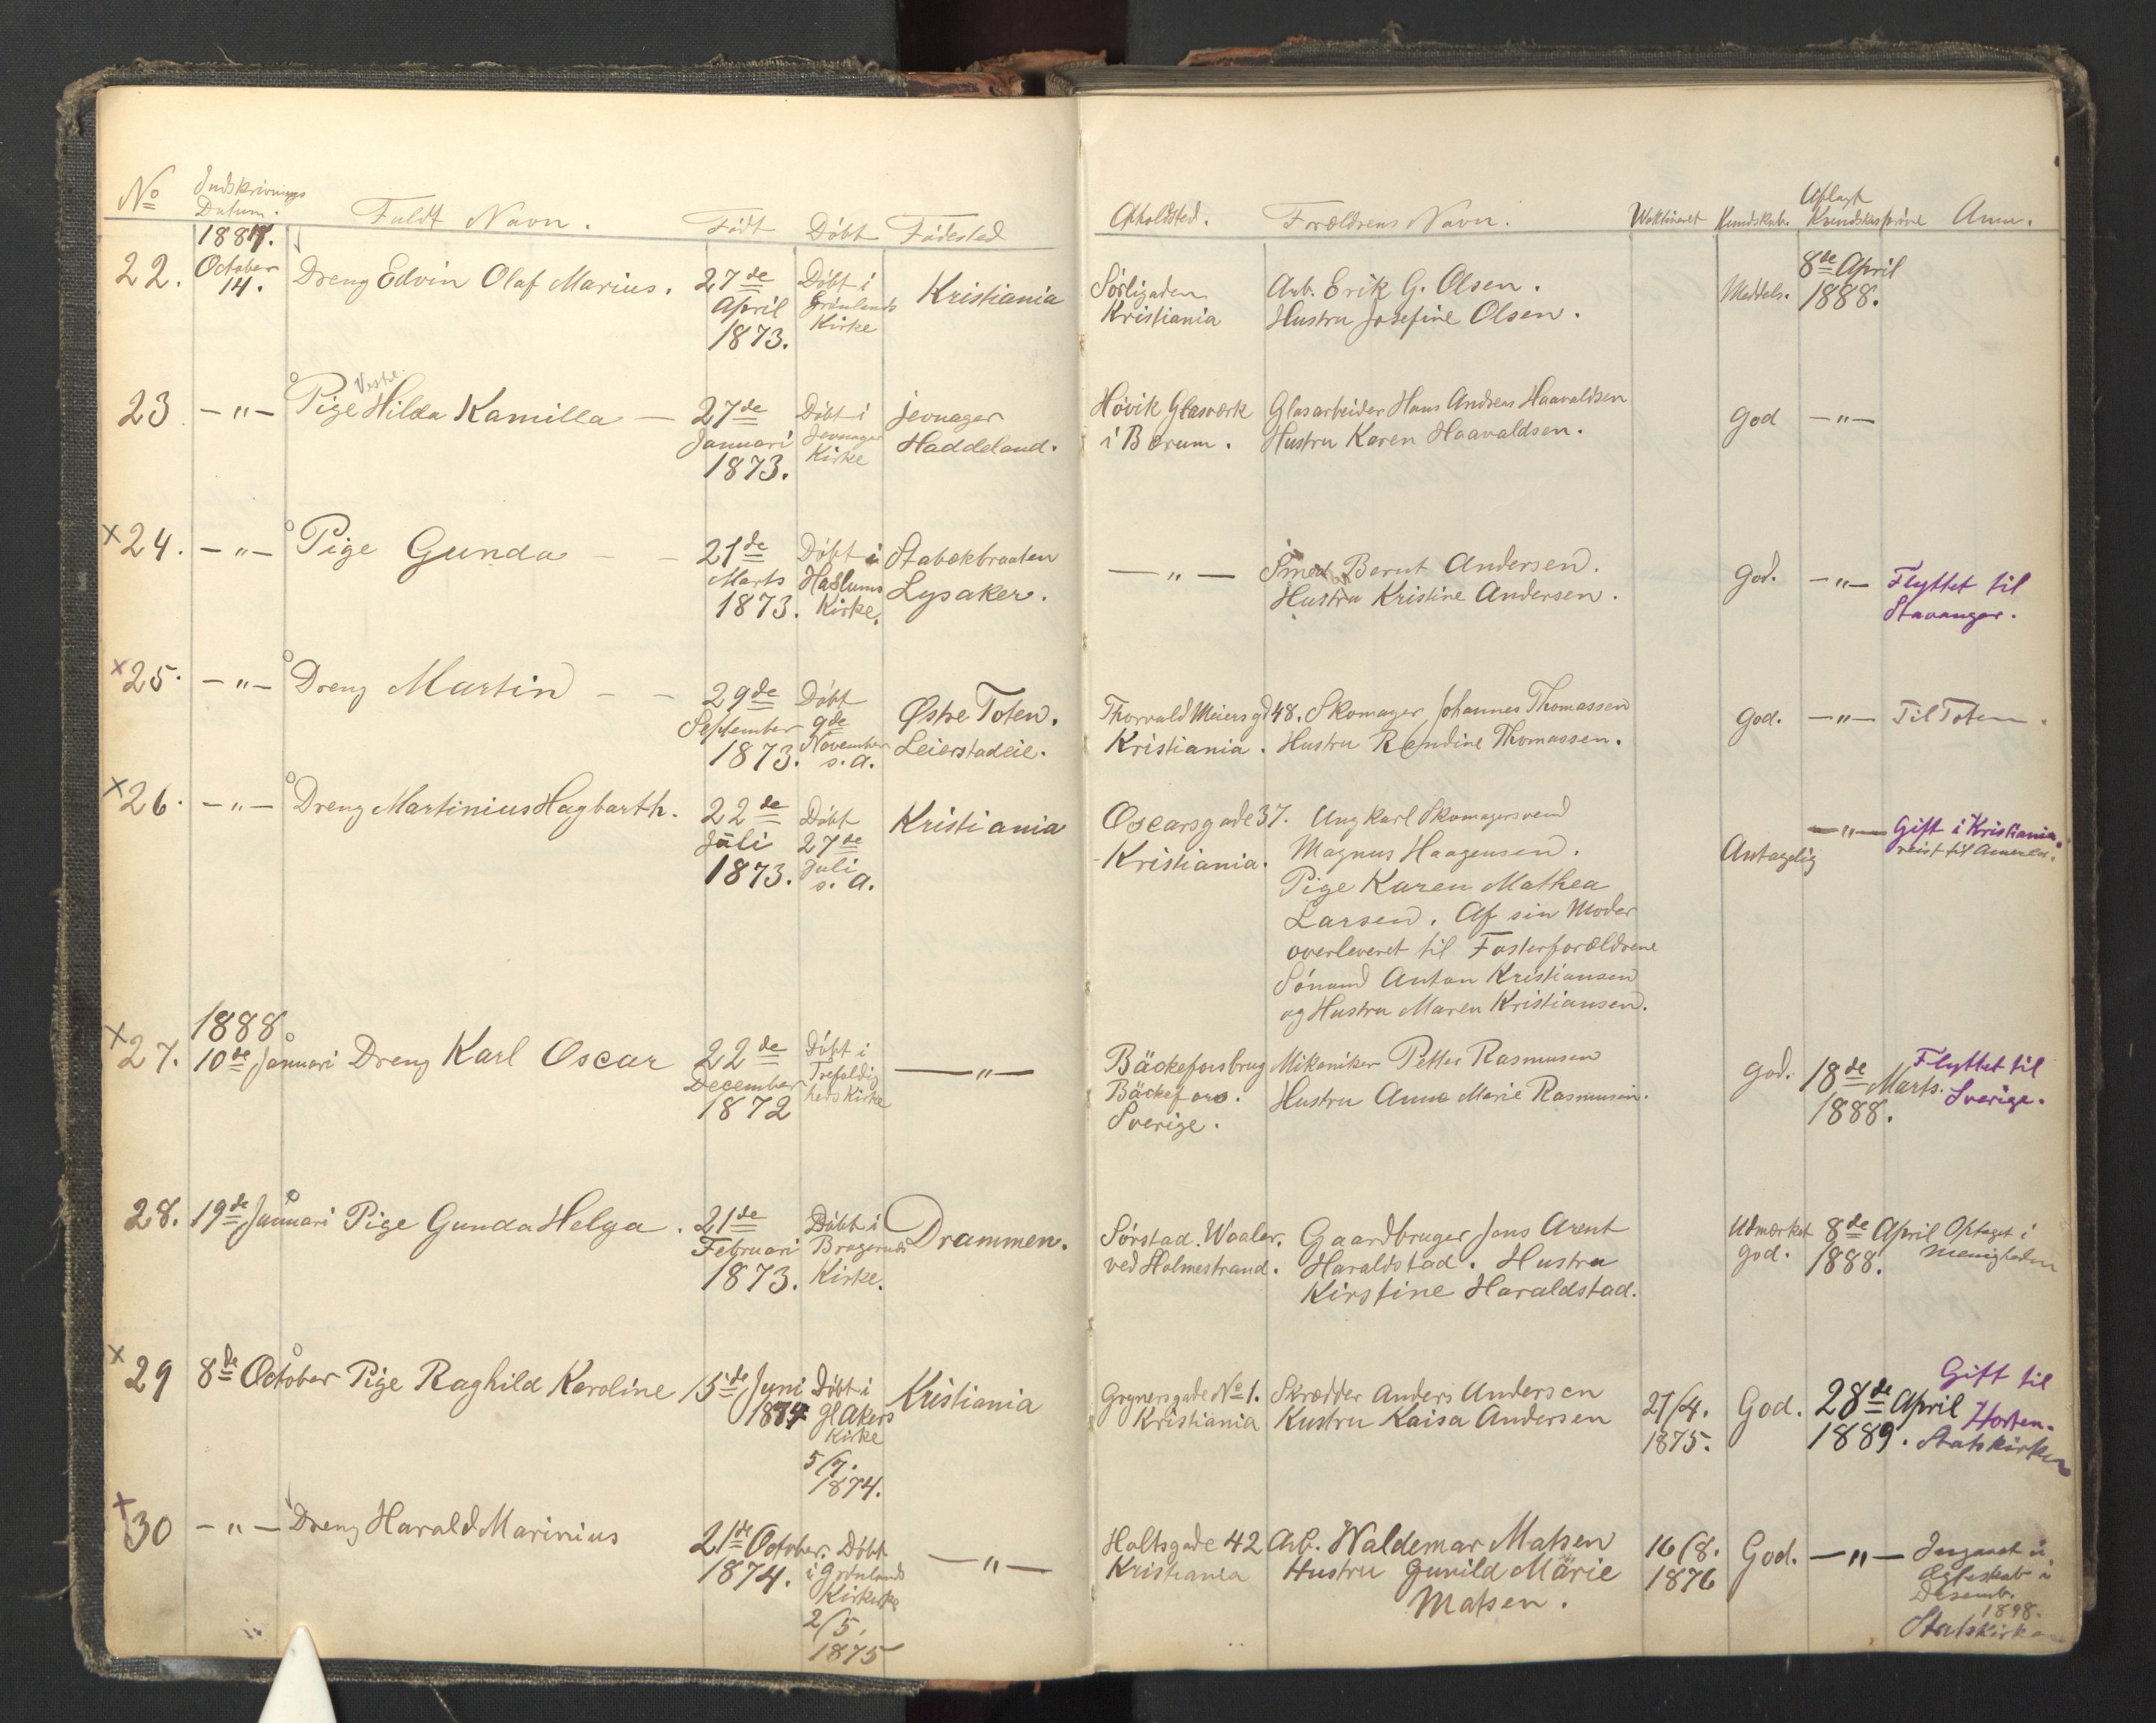 No Indskrivnings Datum. Fuldt Navn. Født Döbt Födested Opholdsted. Forældrenes Navn. Kundskab. Aflagt Kundskabspröve Anm.
1887.
22. October 14. Dreng Edvin Olaf Marius. 27de April 1873. Döbt i Grönlands Kirke Kristiania Sörligaden Kristiania Arb. Erik G. Olsen. Hustru Josefine Olsen. Meddels. 8de April 1888.
23 —"— Pige Hilda Kamilla — 27de Januari 1873. Döbt i Jevnager Kirke Jevnager Haddeland. Hövik Glasværk i Bærum. Glasarbeider Hans Andreas Haavaldsen Hustru Karen Haavaldsen. God —"—
x 24. —"— Pige Gunda — — 21de Marts 1873. Döbt i Haslums Kirke. Stabækbraaten Lysaker. —"— Smed Bernt Andersen. Hustru Kristine Andersen. God. —"— Flyttet til Stavanger.
x 25. —"— Dreng Martin — — 29de September 1873. Döbt 9de November s. a. Østre Toten. Leierstadeie. Thorvald Meiers gd 48. Kristiania. Skomager Johannes Thomassen Hustru Randine Thomassen. God. —"— Til Toten.
x 26. —"— Dreng Martinius Hagbarth. 22de Juli 1873. Döbt 27de Juli s. a. Kristiania Oscarsgade 37. Kristiania. Ungkarl Skomagersvend
Magnus Haagensen.
Pige Karen Mathea
Larsen. Af sin Moder
overleveret til Fosterforældrene
Sömand Anton Kristiansen
og Hustru Maren Kristiansen. Antagelig —"— Gift i Kristiania. reist til
1888
x 27. 10de Januari Dreng Karl Oscar 22de December 1872 Döbt i Trefoldighedskirke —"— Bäckeforsbrug Bäckefors. Sverige. Mikaniker Petter Rasmusen Hustru Anna Marie Rasmusen. God. 18de Marts. 1888. Flyttet til Sverige.
28. 19de Januari Pige Gunda Helga. 21de Februari 1873. Döbt i Bragernæs Kirke. Drammen. Sörstad. Waaler. ved Holmestrand. Gaardbruger Jens Arent Haraldstad. Hustru Kirstine Haraldstad. Udmærket god. 8de April 1888. Optaget i Menigheden
x 29 8de October Pige Raghild Karoline 15de Juni 1874 Döbt i Gl Akers Kirke 5/7. 1874. Kristiania Grynersgade No 1. Kristiania Skrædder Anders Andersen Hustru Kaisa Andersen 27/4. 1875. God. 28de April 1889. Gift til Horten. Statskirken
x 30 —"— Dreng Harald Marinius 21de October. 1874. Döbt i Grönlands Kirke 2/5. 1875 —"— Holtsgade 42 Kristiania Arb. Waldemar Matsen Hustru Gunild Marie Matsen. 16/8. 1876 God. —"— Indgaaet i Ægteskab i Desemb. 1898. Statskirke